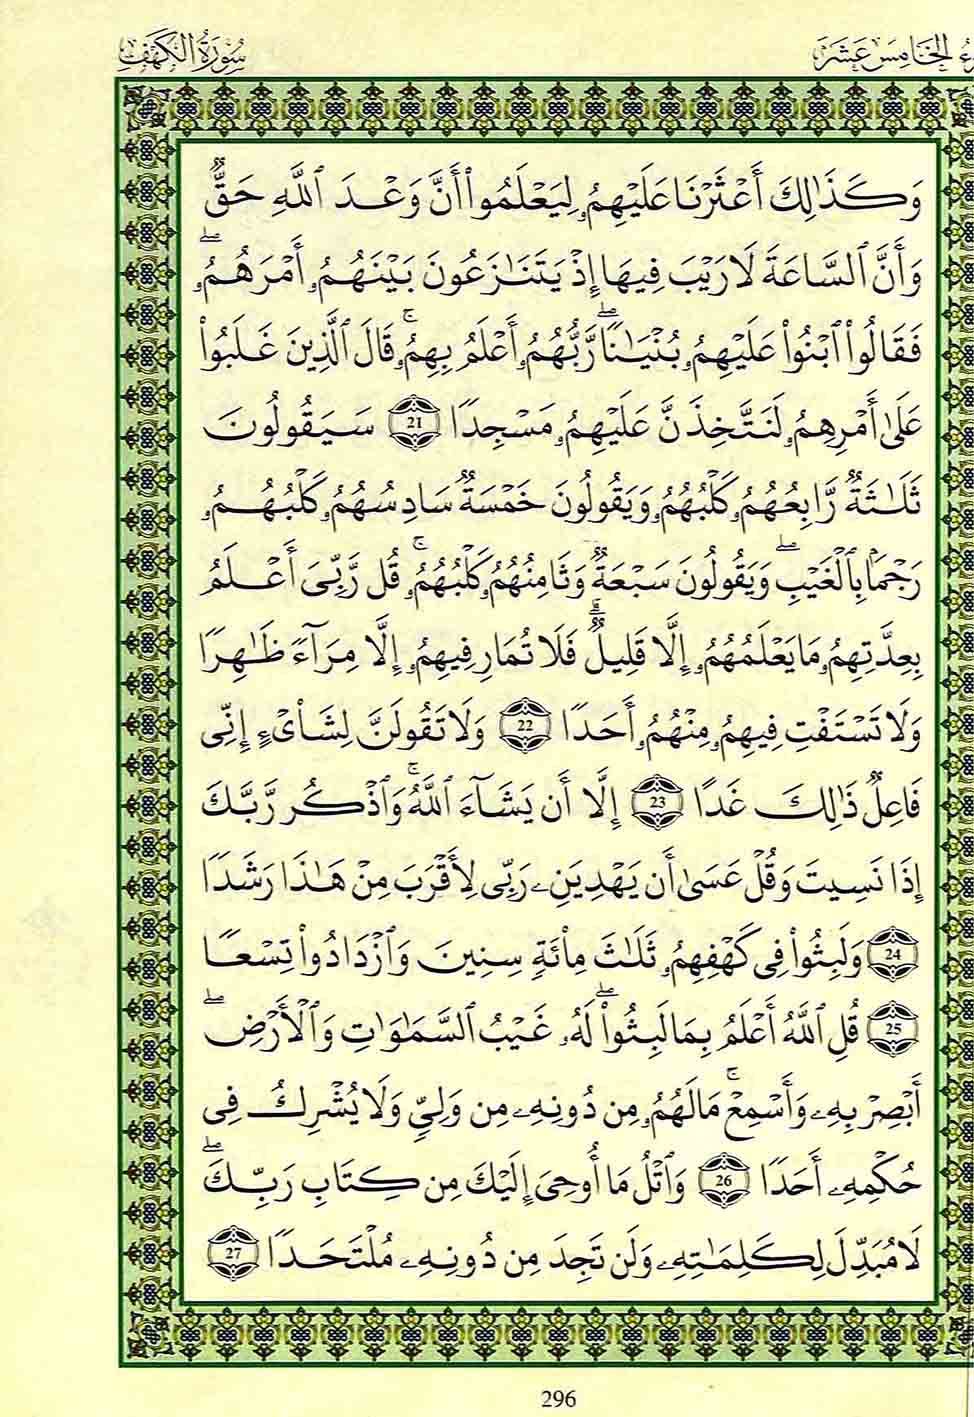 الخَامِسَ عَشَرَ سُورَةُ الكَهْفِ
وَكَذَٰلِكَ أَعْثَرْنَا عَلَيْهِمُۥ لِيَعْلَمُوا۟ أَنَّ وَعْدَ ٱللَّهِ حَقٌّ
وَأَنَّ ٱلسَّاعَةَ لَا رَيْبَ فِيهَا إِذْ يَتَنَٰزَعُونَ بَيْنَهُمُۥ أَمْرَهُمُۥۖ
فَقَالُوا۟ ٱبْنُوا۟ عَلَيْهِمُۥ بُنْيَٰنًاۖ رَّبُّهُمُۥ أَعْلَمُ بِهِمُۥۚ قَالَ ٱلَّذِينَ غَلَبُوا۟
عَلَىٰ أَمْرِهِمُۥ لَنَتَّخِذَنَّ عَلَيْهِمُۥ مَسْجِدًا 21 سَيَقُولُونَ
ثَلَٰثَةٌ رَّابِعُهُمُۥ كَلْبُهُمُۥ وَيَقُولُونَ خَمْسَةٌ سَادِسُهُمُۥ كَلْبُهُمُۥ
رَجْمًۢا بِٱلْغَيْبِۖ وَيَقُولُونَ سَبْعَةٌ وَثَامِنُهُمُۥ كَلْبُهُمُۥۚ قُل رَّبِّىَ أَعْلَمُ
بِعِدَّتِهِمُۥ مَا يَعْلَمُهُمُۥ إِلَّا قَلِيلٌۗ فَلَا تُمَارِ فِيهِمُۥ إِلَّا مِرَآءً ظَٰهِرًا
وَلَا تَسْتَفْتِ فِيهِمُۥ مِنْهُمُۥ أَحَدًا 22 وَلَا تَقُولَنَّ لِشَا۟ىْءٍ إِنِّى
فَاعِلٌ ذَٰلِكَ غَدًا 23 إِلَّا أَن يَشَآءَ ٱللَّهُۚ وَٱذْكُر رَّبَّكَ
إِذَا نَسِيتَ وَقُلْ عَسَىٰ أَن يَهْدِيَنِۦ رَبِّى لِأَقْرَبَ مِنْ هَٰذَا رَشَدًا
24 وَلَبِثُوا۟ فِى كَهْفِهِمُۥ ثَلَٰثَ مِا۟ئَةٍ سِنِينَ وَٱزْدَادُوا۟ تِسْعًا
25 قُلِ ٱللَّهُ أَعْلَمُ بِمَا لَبِثُوا۟ۖ لَهُۥ غَيْبُ ٱلسَّمَٰوَٰتِ وَٱلْأَرْضِۖ
أَبْصِرْ بِهِۦ وَأَسْمِعْۚ مَا لَهُمُۥ مِن دُونِهِۦ مِن وَلِيٍّ وَلَا يُشْرِكُ فِى
حُكْمِهِۦ أَحَدًا 26 وَٱتْلُ مَا أُوحِىَ إِلَيْكَ مِن كِتَابِ رَبِّكَۖ
لَا مُبَدِّلَ لِكَلِمَٰتِهِۦ وَلَن تَجِدَ مِن دُونِهِۦ مُلْتَحَدًا 27
296